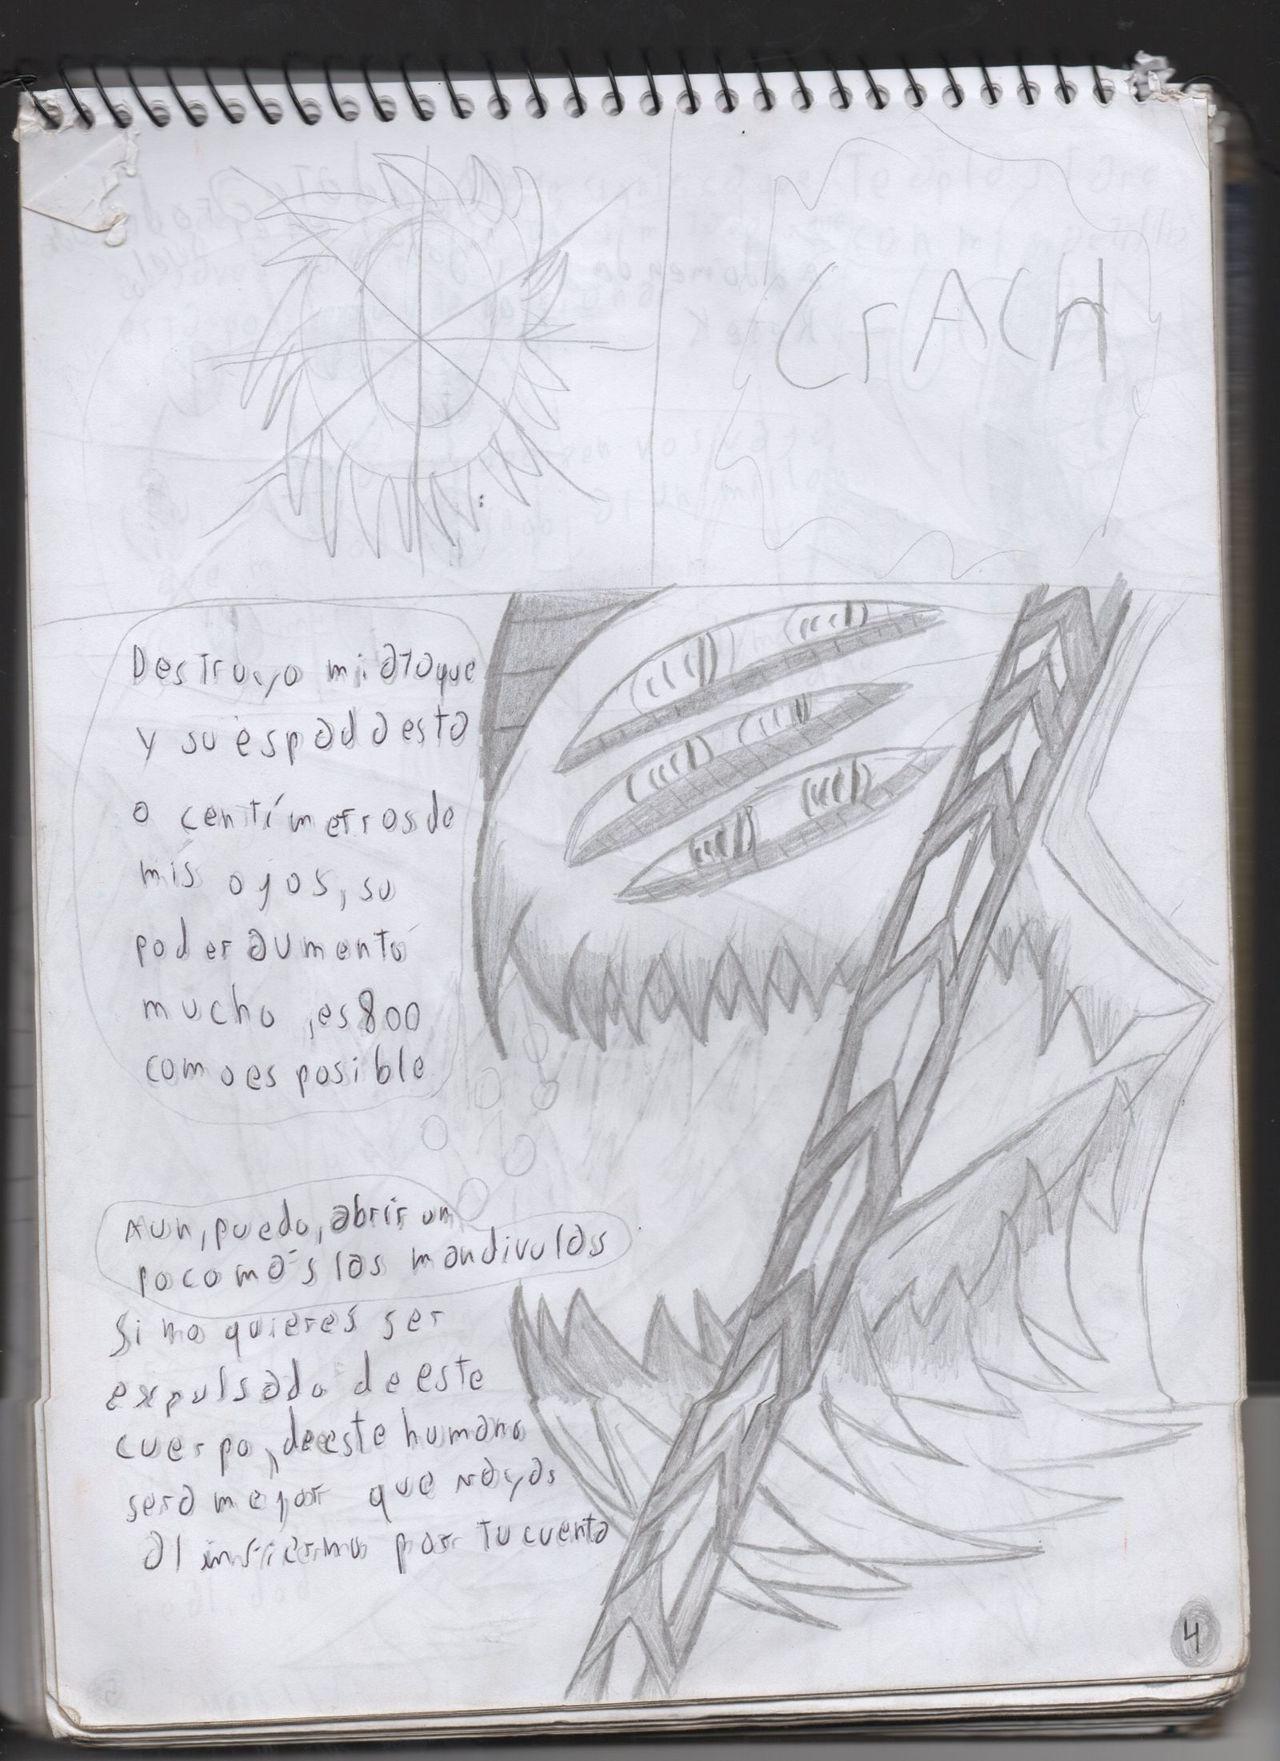 CrACH
Destruyo mi ataque
y su espada esta
a centímetros de
mis ojos, su
poder aumentó
mucho, es 800
como es posible
Aun, puedo, abrir un
poco más las mandivulas
Si no quieres ser
expulsado de este
cuerpo, de este humano
sera mejor que vayas
al por tu cuenta
4